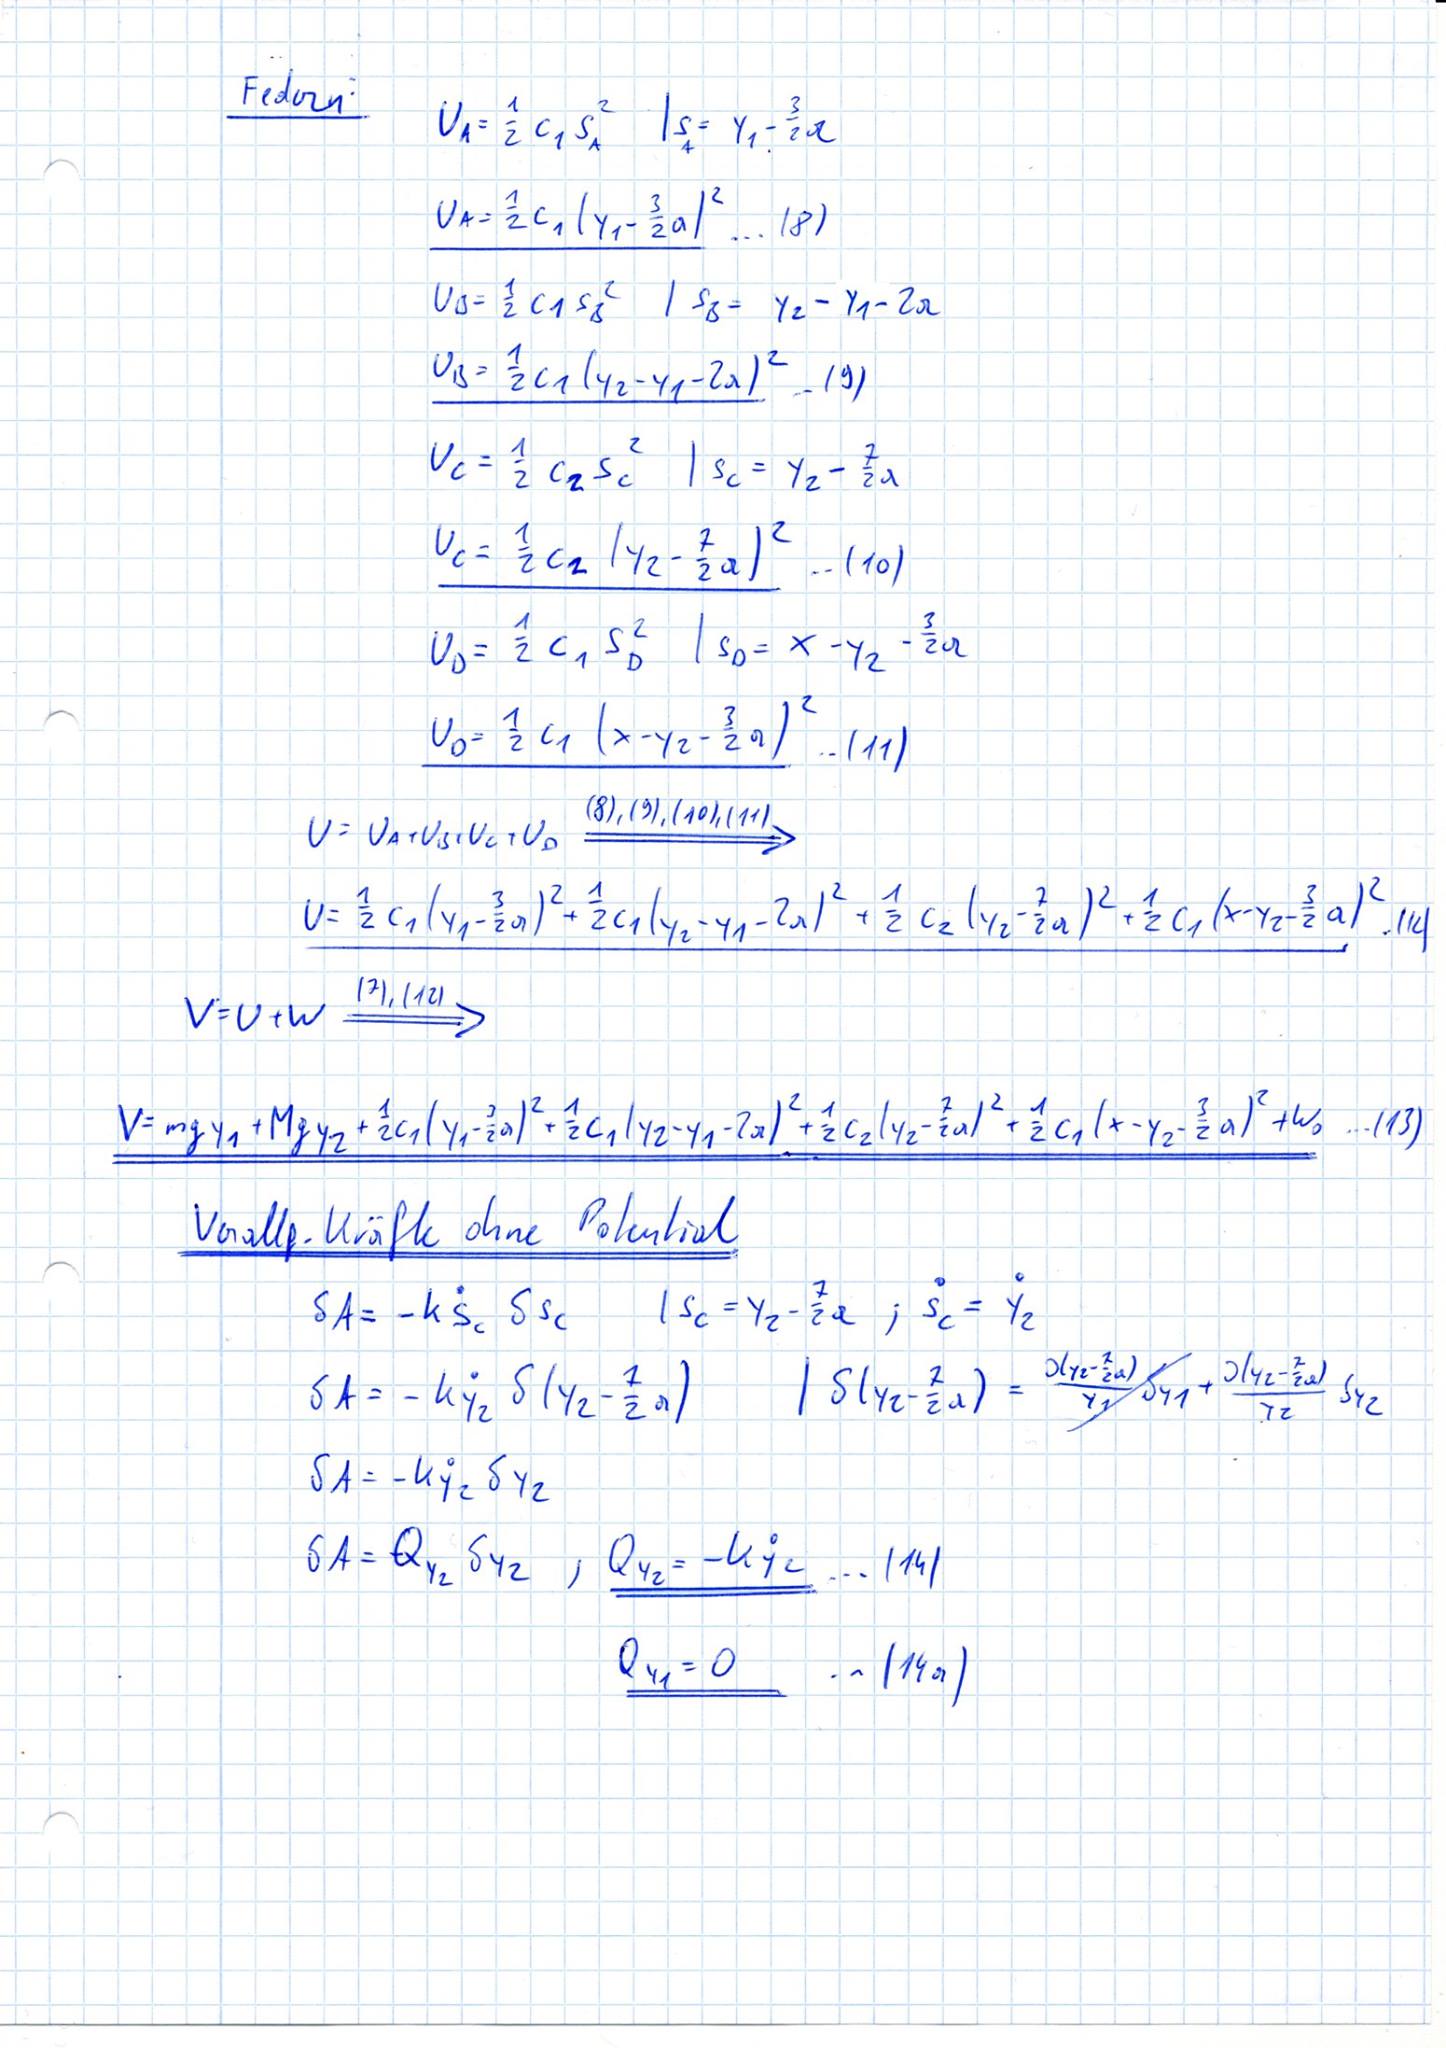 Federn:
U_A = 1/2 c_1 s_A^2 | s_A = y_1 - 3/2 a
U_A = 1/2 c_1 (y_1 - 3/2 a)^2 ... (8)
U_B = 1/2 c_1 s_B^2 | s_B = y_2 - y_1 - 2a
U_B = 1/2 c_1 (y_2 - y_1 - 2a)^2 .. (9)
U_C = 1/2 c_2 s_C^2 | s_C = y_2 - 7/2 a
U_C = 1/2 c_2 (y_2 - 7/2 a)^2 .. (10)
U_D = 1/2 c_1 s_D^2 | s_D = x - y_2 - 3/2 a
U_D = 1/2 c_1 (x - y_2 - 3/2 a)^2 .. (11)
U = U_A + U_B + U_C + U_D (8), (9), (10), (11) ⟹
U = 1/2 c_1 (y_1 - 3/2 a)^2 + 1/2 c_1 (y_2 - y_1 - 2a)^2 + 1/2 c_2 (y_2 - 7/2 a)^2 + 1/2 c_1 (x - y_2 - 3/2 a)^2
V = U + W (7), (12) ⟹
V = mg y_1 + Mg y_2 + 1/2 c_1 (y_1 - 3/2 a)^2 + 1/2 c_1 (y_2 - y_1 - 2a)^2 + 1/2 c_2 (y_2 - 7/2 a)^2 + 1/2 c_1 (x - y_2 - 3/2 a)^2 + W_0 ... (13)
Verallg. Kräfte ohne Potential
δA = -k ṡ_C δs_C | s_C = y_2 - 7/2 a ; ṡ_C = ẏ_2
δA = -k ẏ_2 δ(y_2 - 7/2 a) | δ(y_2 - 7/2 a) = ∂(y_2 - 7/2 a)/y_1 δy_1 + ∂(y_2 - 7/2 a)/y_2 δy_2
δA = -k ẏ_2 δy_2
δA = Q_y2 δy_2 , Q_y2 = -k ẏ_2 ... (14)
Q_y1 = 0 ... (14a)